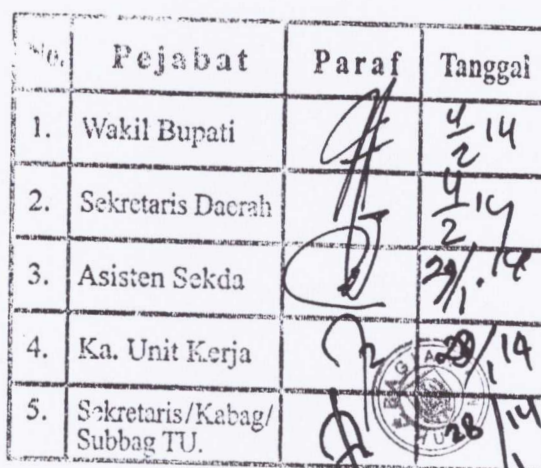 No. Pejabat Paraf Tanggal
1. Wakil Bupati 4/2 14
2. Sekretaris Daerah 4/2 14
3. Asisten Sekda 29/1 14
4. Ka. Unit Kerja 28/1 14
5. Sekretaris/Kabag/ 28/1 14
Subbag TU.
BAGIA
HU